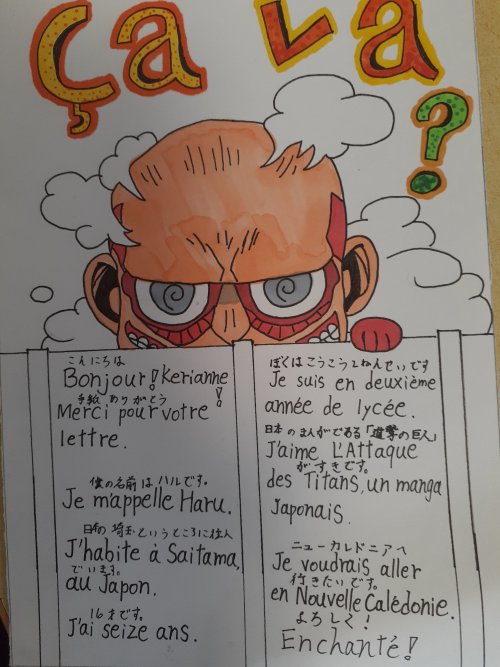 Ça Va ?
こんにちは
Bonjour! Kerianne!
手紙 ありがとう
Merci pour votre
lettre.
僕の名前はハルです。
Je m'appelle Haru.
日本の埼玉というところに住ん
J'habite à Saitama,
でいます。
au Japon.
16才です。
J'ai seize ans.
ぼくはこうこう2ねんせいです
Je suis en deuxième
année de lycée.
日本のまんがである「進撃の巨人」
J'aime L'Attaque
がすきです。
des Titans, un manga
Japonais.
ニューカレドニアへ
Je voudrais aller
行きたいです。
en Nouvelle Calédonie.
よろしく!
Enchanté!